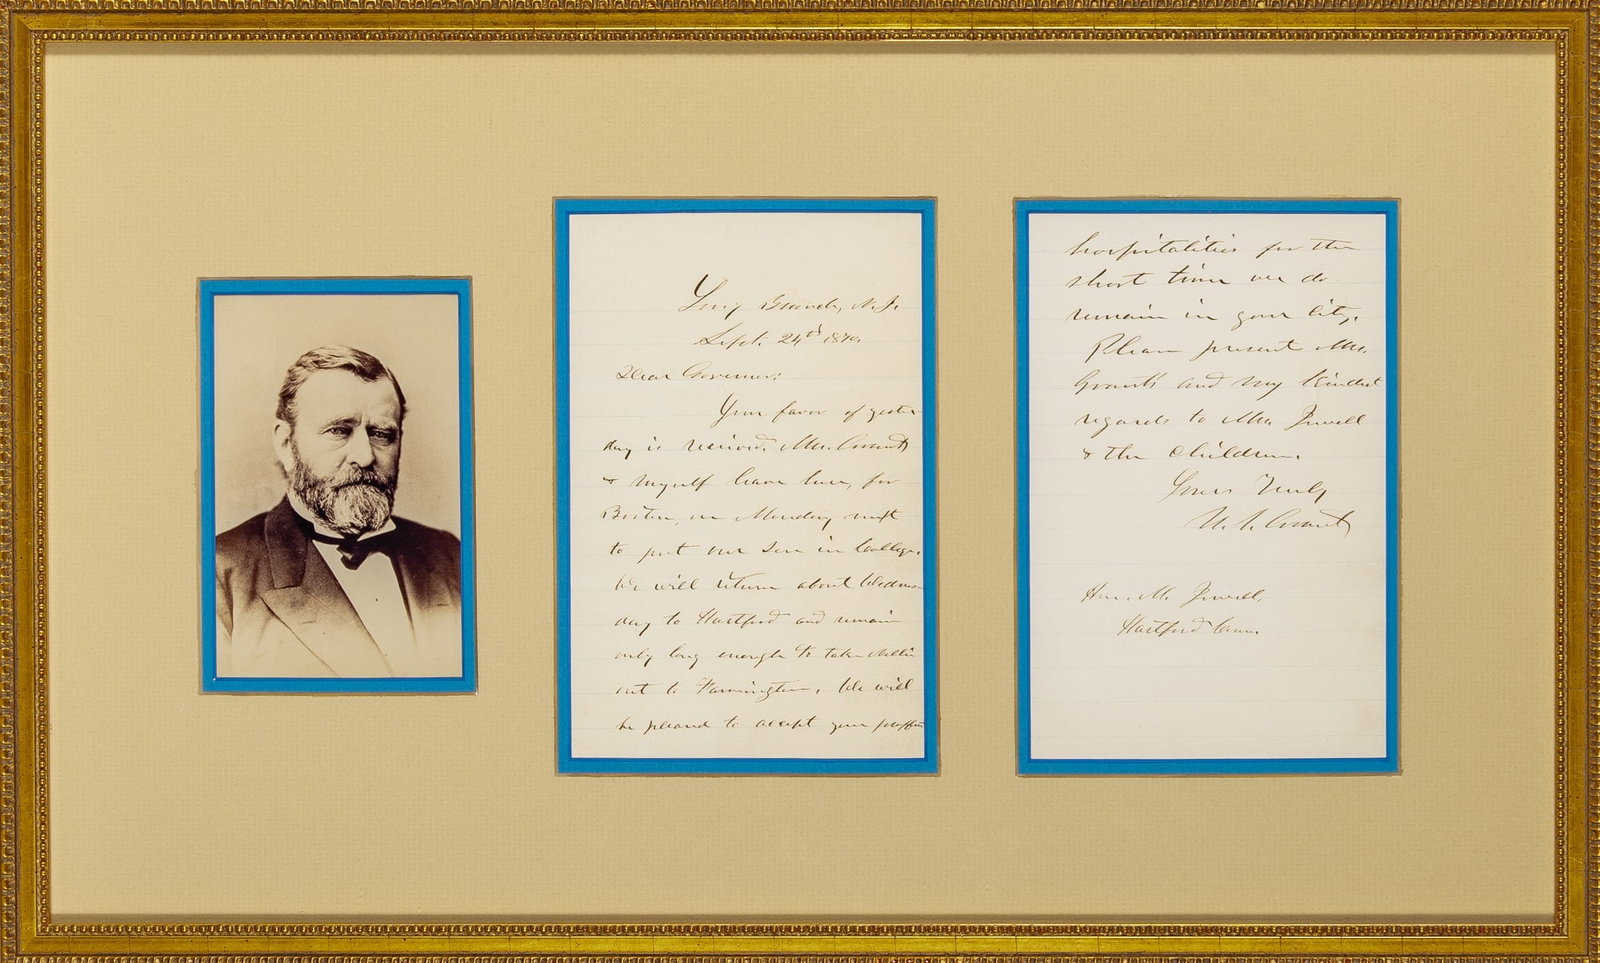 Long Branch, N.J.
Sept. 24th 1870.
Dear Governor:
Your favor of yester-
day is received. Mrs. Grant
& myself leave here, for
Boston, on Monday next
to put our son in College.
We will return about Wednes-
day to Hartford and remain
only long enough to take Nellie
out to Farmington. We will
be pleased to accept your
hospitalities for the
short time we do
remain in your City.
Please present Mrs.
Grant's and my kindest
regards to Mrs. Jewell
& the children.
Yours Truly
U. S. Grant
Hon. M. Jewell,
Hartford Conn.